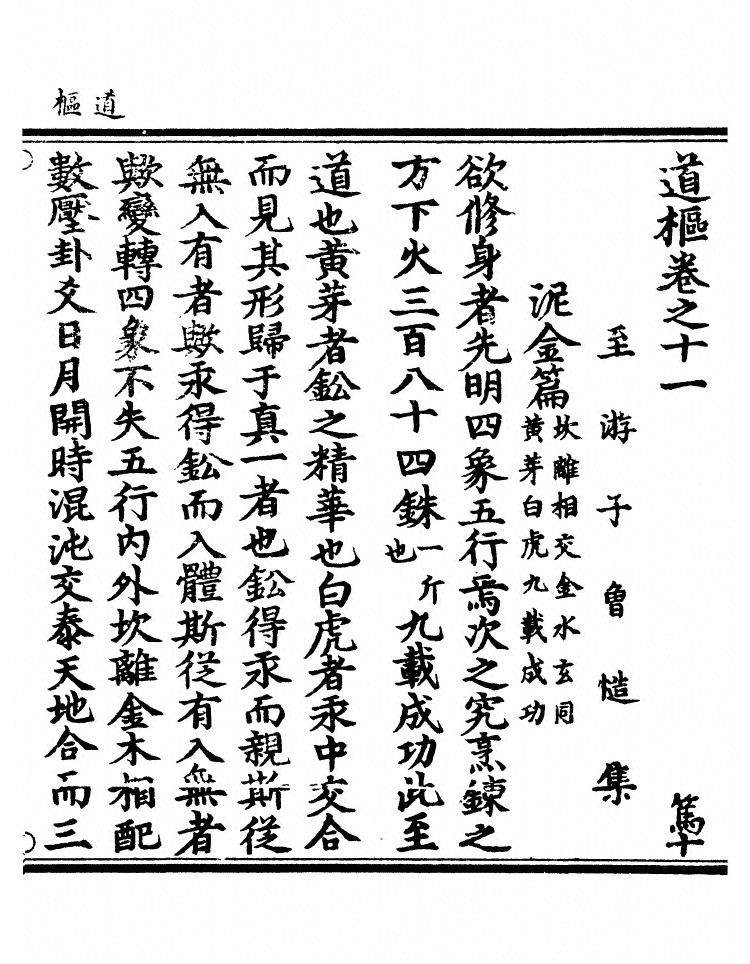 道樞
道樞卷之十一 篤十
至游子曾慥集
泥金篇 坎離相交金水玄同
黃芽白虎九載成功
欲修身者先明四象五行焉次之究烹鍊之
方下火三百八十四銖一斤也九載成功此至
道也黃芽者鈆之精華也白虎者汞中交合
而見其形歸于真一者也鈆得汞而親斯從
無入有者歟汞得鈆而入體斯從有入無者
歟變轉四象不失五行內外坎離金木相配
數歷卦爻日月開時混沌交泰天地合而三